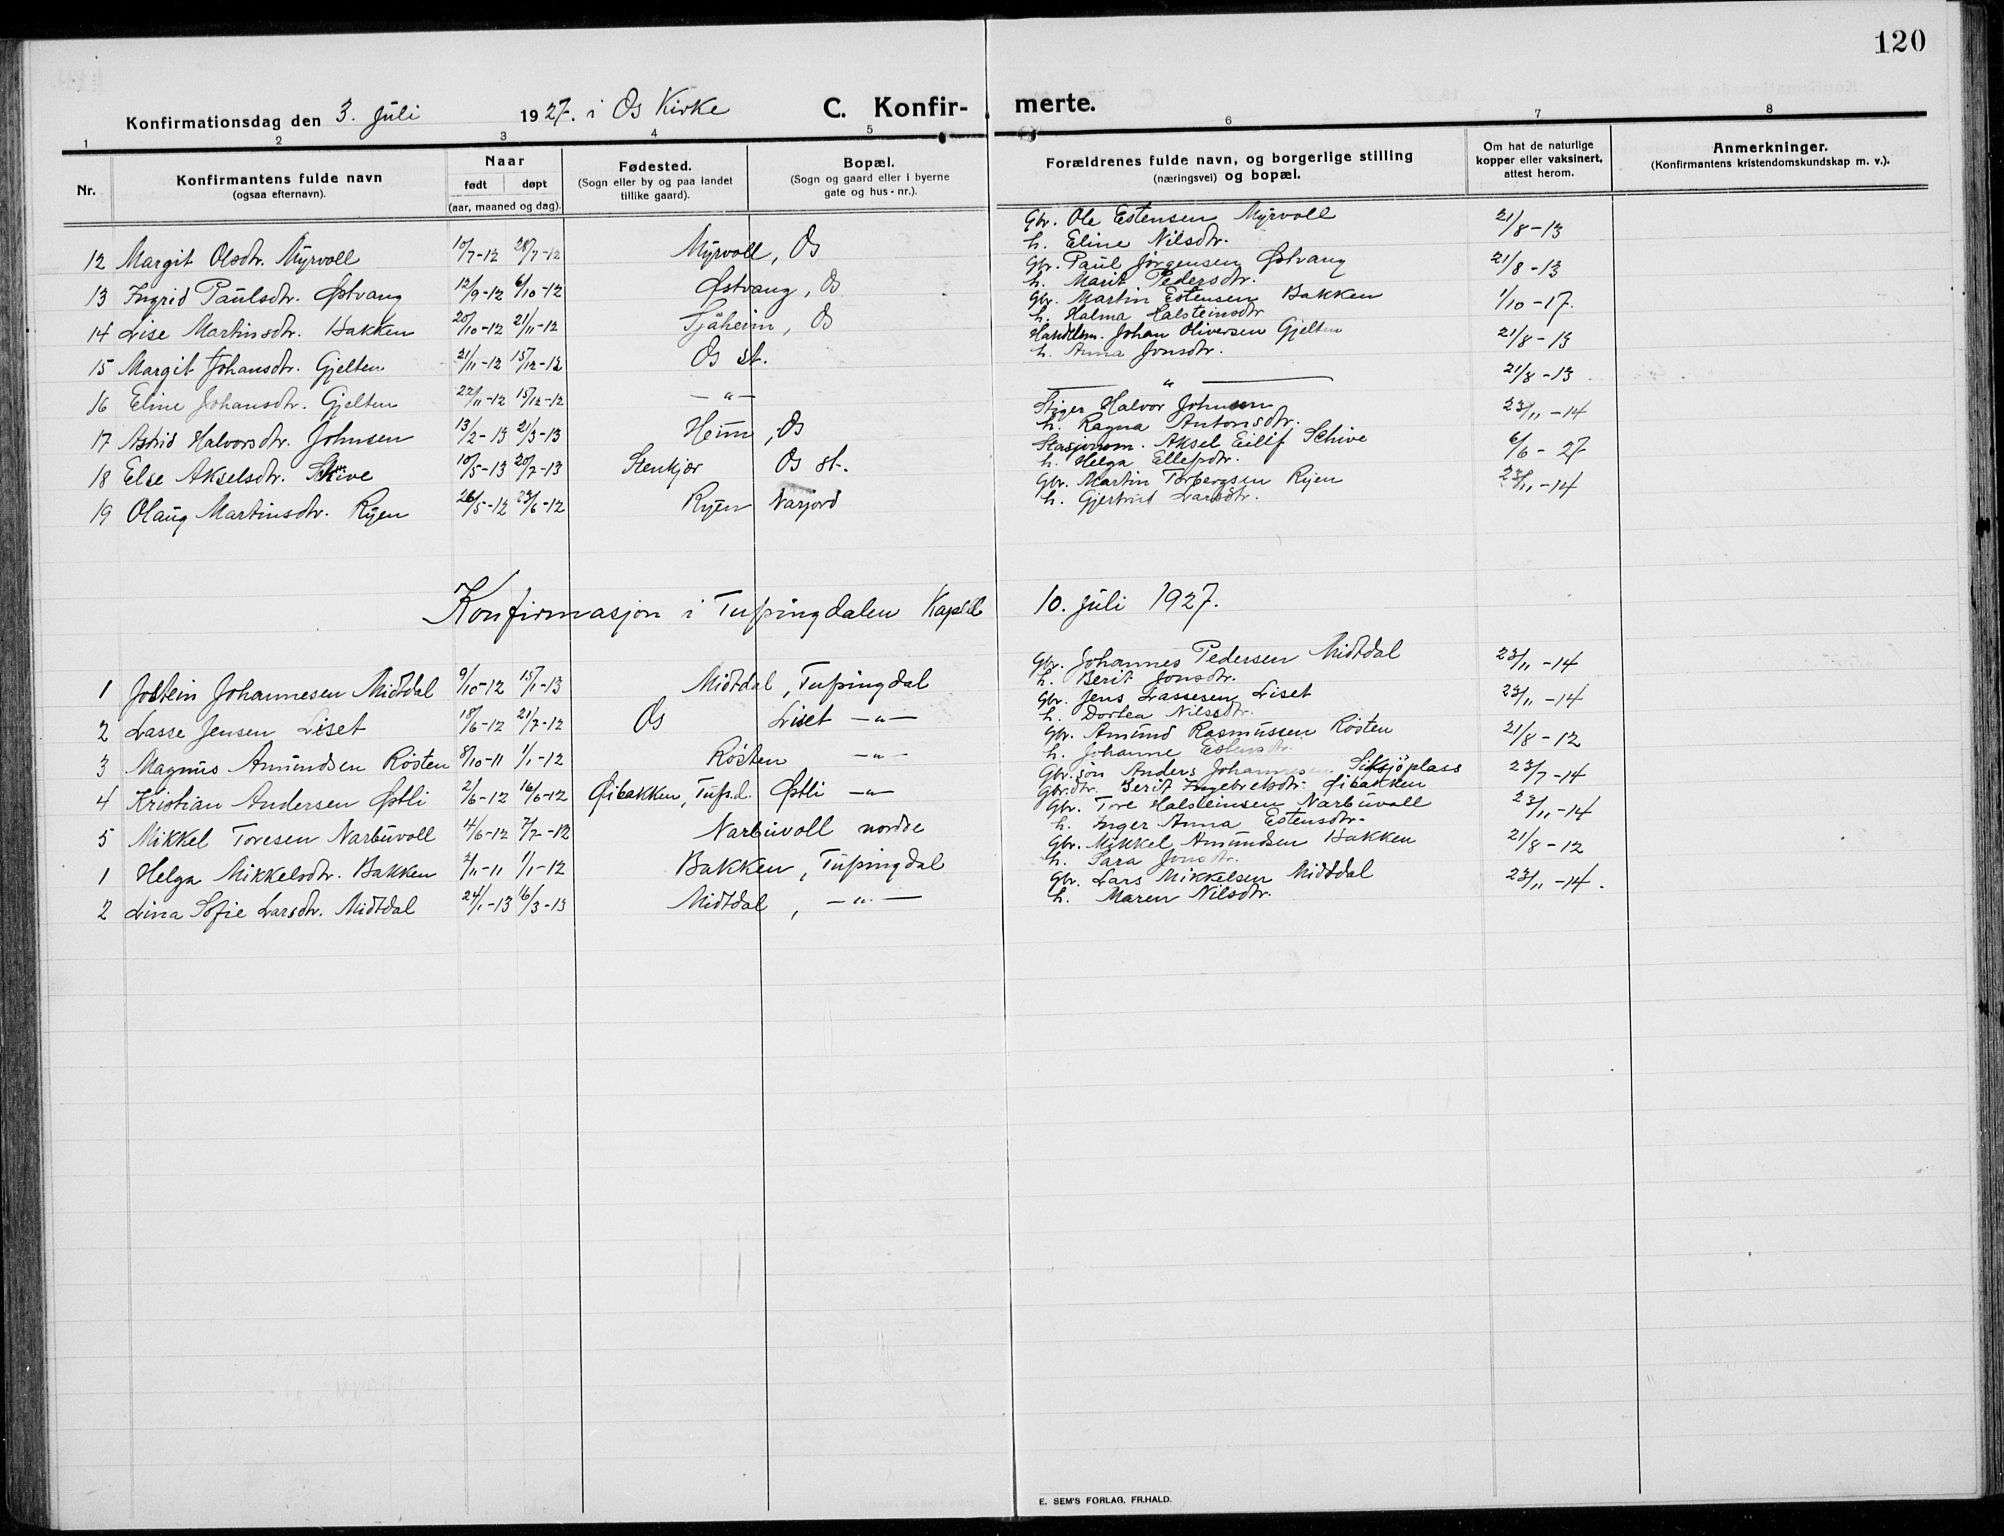 120
Konfirmationsdag den 3. Juli 1927. i Os Kirke C. Konfir- merte.
1 2 3 4 5 6 7 8
Nr. Konfirmantens fulde navn (ogsaa efternavn). Naar født døpt (aar, maaned og dag). Fødested. (Sogn eller by og paa landet tillike gaard). Bopæl. (Sogn og gaard eller i byerne gate og hus-nr.). Forældrenes fulde navn, og borgerlige stilling (næringsvei) og bopæl. Om hat de naturlige kopper eller vaksinert, attest herom. Anmerkninger. (Konfirmantens kristendomskundskap m. v.).
12 Margit Olsdtr. Myrvoll 10/7-12 28/7-12 Myrvoll, Os Gbr. Ole Estensen Myrvoll 21/8-13
h. Eline Nilsdtr.
13 Ingrid Paulsdtr. Østvang 12/9-12 6/10-12 Østvang, Os Gbr. Paul Jørgensen Østvang 21/8-13
h. Marit Pedersdtr.
14 Lise Martinsdtr. Bakken 20/10-12 21/11-12 Sjåheim, Os Gbr. Martin Estensen Bakken 1/10-17.
h. Halma Halsteinsdtr
15 Margit Johansdtr. Gjelten 21/11-12 15/12-12 Os st. Handelsm. Johan Oliversen Gjelten 21/8-13
h. Anna Jonsdtr.
16 Eline Johansdtr. Gjelten 22/11-12 15/12-12 — " — — " — 21/8-13
17 Astrid Halvorsdtr. Johnsen 13/2-13 21/3-13 Heim, Os Stiger Halvor Johnsen 23/11-14
h. Ragna Antonsdtr.
18 Else Akselsdtr. Skive 10/5-13 20/7-13 Stenkjær Os st. Stasjonsm. Aksel Eilif Schive 6/6-27
h. Helga Ellefsdtr.
19 Olaug Martinsdtr. Ryen 26/5-12 23/6-12 Ryen Narjord Gbr. Martin Torbergsen Ryen 23/11-14
h. Gjertrud Larsdtr.
Konfirmasjon i Tufsingdalen Kapel 10. juli 1927.
1 Jostein Johannesen Midtdal 9/10-12 15/1-13 Midtdal, Tufsingdal Gbr. Johannes Pedersen Midtdal 23/11-14
h. Berit Jonsdtr.
2 Lasse Jensen Liset 18/6-12 21/7-12 Os Liset — " — Gbr. Jens Lassesen Liset 23/11-14
h. Dortea Nilsdtr.
3 Magnus Amundsen Røsten 8/10-11 1/1-12 Røsten — " — Gbr. Amund Rasmussen Røsten 21/8-12
h. Johanne Estensdtr.
4 Kristian Andersen Østli 2/6-12 16/6-12 Øibakken, Tufs.d. Østli — " — Gbr.søn Anders Johannesen Siksjöplass 23/7-14
Gbr.dtr. Berit Ingebretsdtr. Øibakken
5 Mikkel Toresen Narbuvoll 4/6-12 7/7-12 Narbuvoll nordre Gbr. Tore Halsteinsen Narbuvoll 23/11-14
h. Inger Anna Estensdtr.
1 Helga Mikkelsdtr. Bakken 2/11-11 1/1-12 Bakken, Tufsingdal Gbr. Mikkel Amundsen Bakken 21/8-12
h. Sara Jonsdtr.
2 Lina Sofie Larsdtr. Midtdal 24/1-13 16/3-13 Midtdal, — " — Gbr. Lars Mikkelsen Midtdal 23/11-14.
h. Maren Nilsdtr.
E. SEM'S FORLAG, FR.HALD.